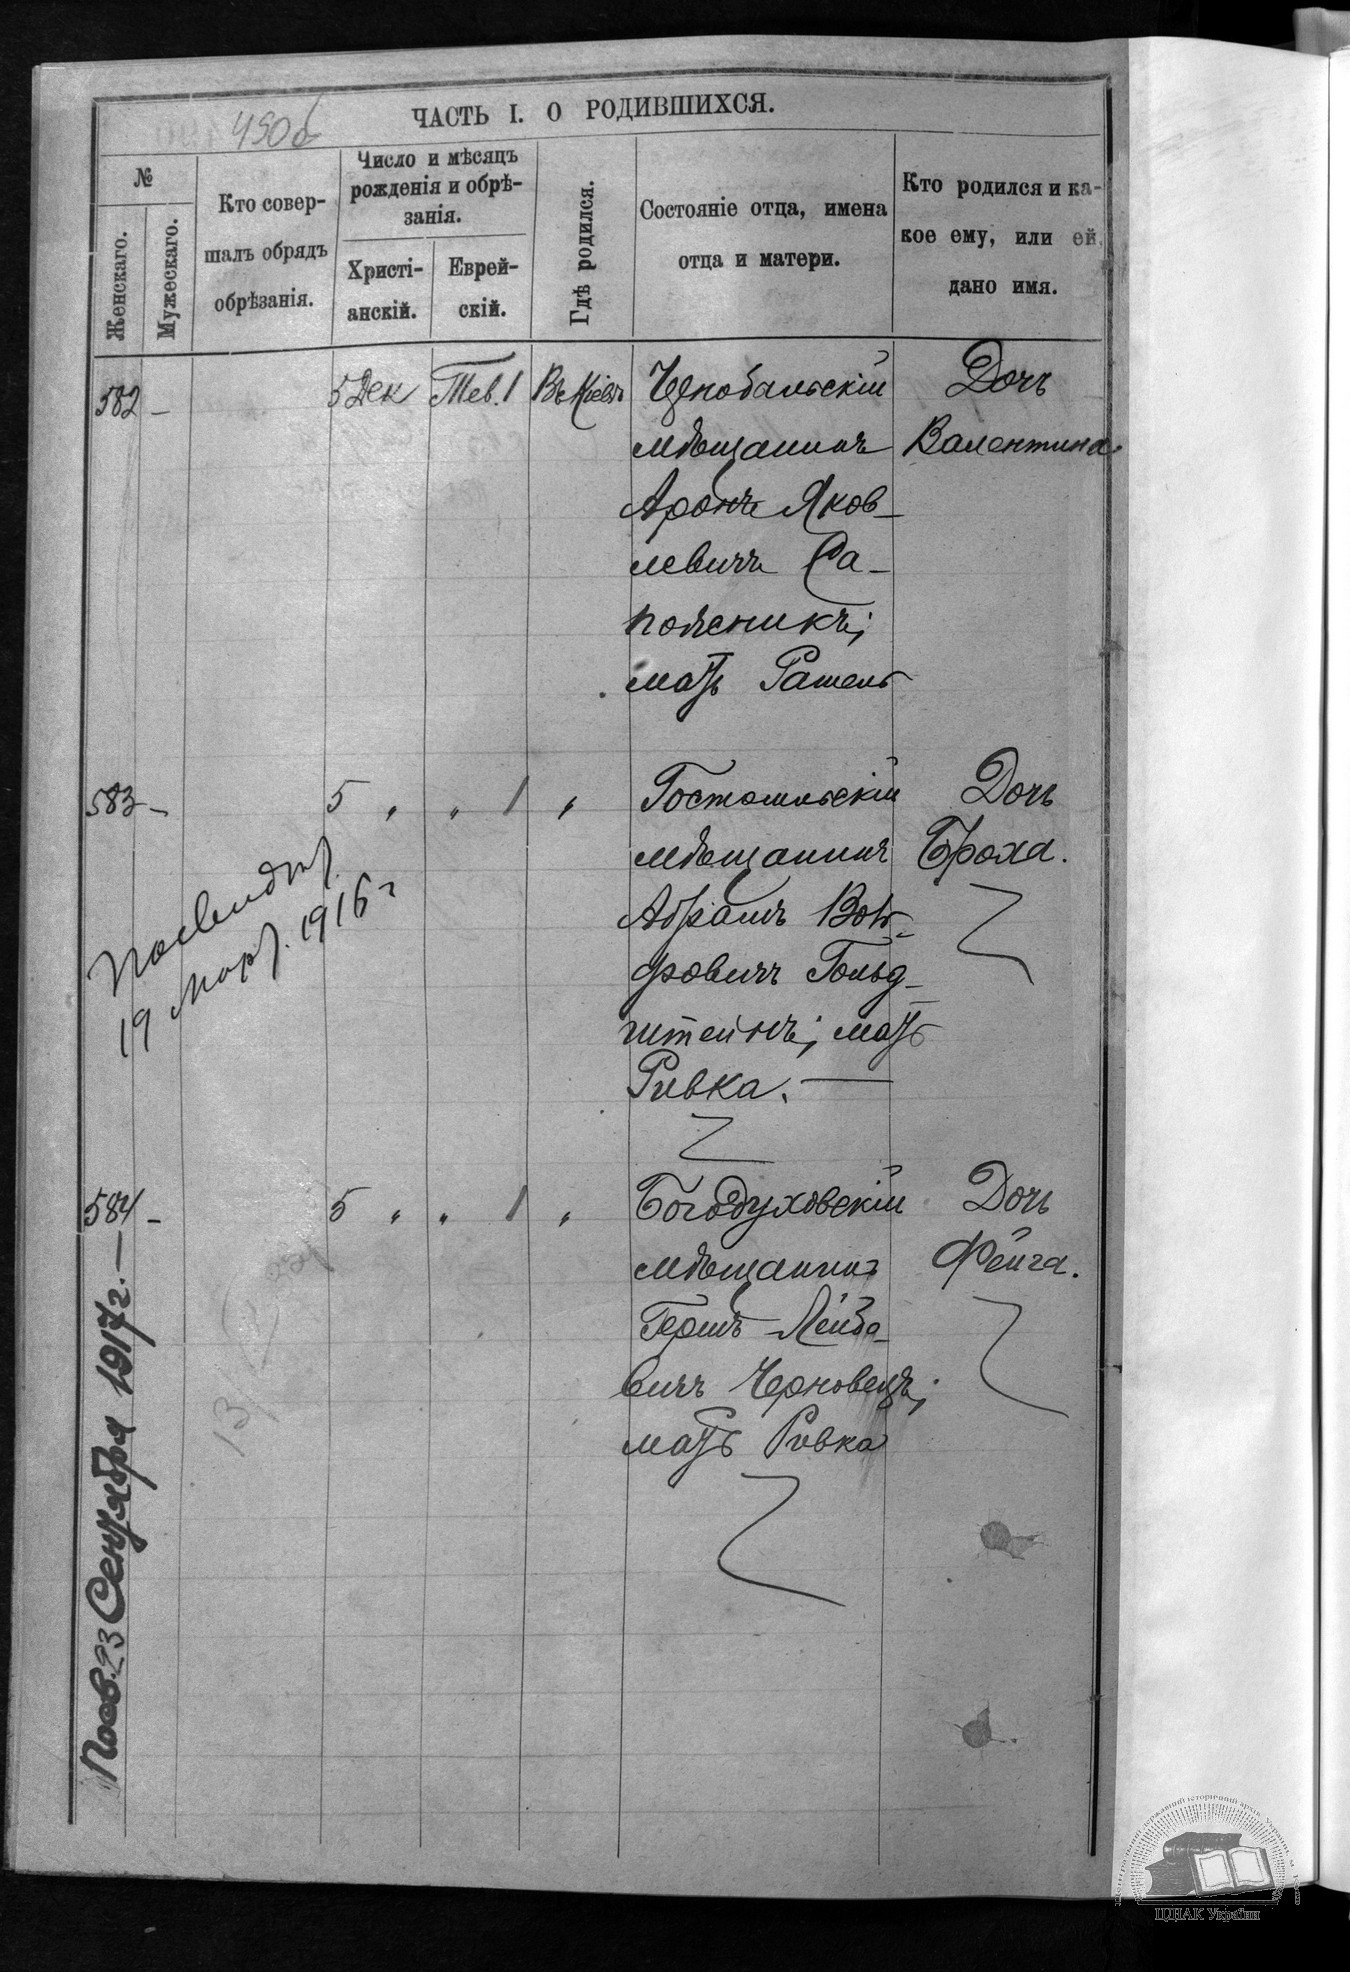 450б
ЧАСТЬ I. О РОДИВШИХСЯ.
№
Женскаго.
Мужескаго.
Кто совер-
шалъ обрядъ
обрѣзанія.
Число и мѣсяцъ
рожденія и обрѣ-
занія.
Христі-
анскій.
Еврей-
скій.
Гдѣ родился.
Состояніе отца, имена
отца и матери.
Кто родился и ка-
кое ему, или ей
дано имя.
582 –
5 Дек
Тев. 1
Въ Кіевѣ
Чернобыльскій
мѣщанинъ
Аронъ Яков-
левичъ Са-
пожникъ;
мать Рашель
Дочь
Валентина.
583 –
5 "
" 1
"
Гостомльскій
мѣщанинъ
Абрамъ Воль-
фовичъ Гольд-
штейнъ; мать
Ривка. —
Дочь
Броха.
19 Март. 1916 г
584 –
5 "
" 1
"
Богодуховскій
мѣщанинъ
Гершъ Лейбо-
вичъ Черновецъ;
мать Ривка
Дочь
Фейга.
Посв. 23 Сентября 1917 г. —
ЦДІАК України